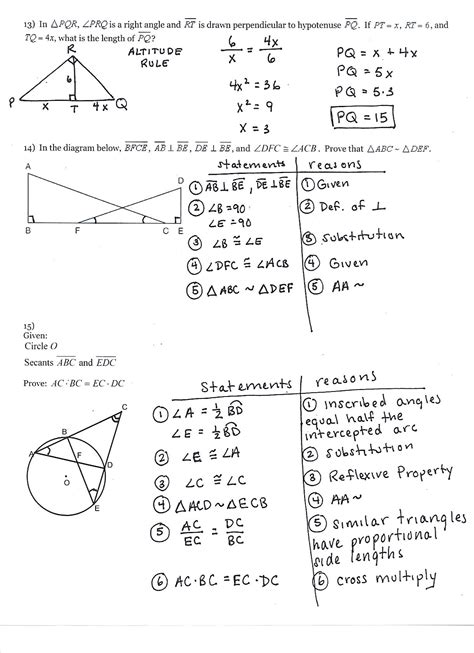 13) In △PQR, ∠PRQ is a right angle and RT is drawn perpendicular to hypotenuse PQ. If PT = x, RT = 6, and
TQ = 4x, what is the length of PQ?
R
6
P
x
T
4x
Q
ALTITUDE
RULE
6/x = 4x/6
4x² = 36
x² = 9
x = 3
PQ = x + 4x
PQ = 5x
PQ = 5·3
PQ = 15
14) In the diagram below, BFCE, AB ⊥ BE, DE ⊥ BE, and ∠DFC ≅ ∠ACB. Prove that △ABC ~ △DEF.
A
D
B
F
C
E
statements
reasons
① AB ⊥ BE, DE ⊥ BE
① Given
② ∠B = 90
∠E = 90
② Def. of ⊥
③ ∠B ≅ ∠E
③ substitution
④ ∠DFC ≅ ∠ACB
④ Given
⑤ △ABC ~ △DEF
⑤ AA ~
15)
Given:
Circle O
Secants ABC and EDC
Prove: AC · BC = EC · DC
C
B
A
F
D
O
E
Statements
reasons
① ∠A = ½ BD
∠E = ½ BD
① inscribed angles
equal half the
intercepted arc
② ∠E ≅ ∠A
② substitution
③ ∠C ≅ ∠C
③ Reflexive Property
④ △ACD ~ △ECB
④ AA ~
⑤ AC/EC = DC/BC
⑤ similar triangles
have proportional
side lengths
⑥ AC·BC = EC·DC
⑥ cross multiply